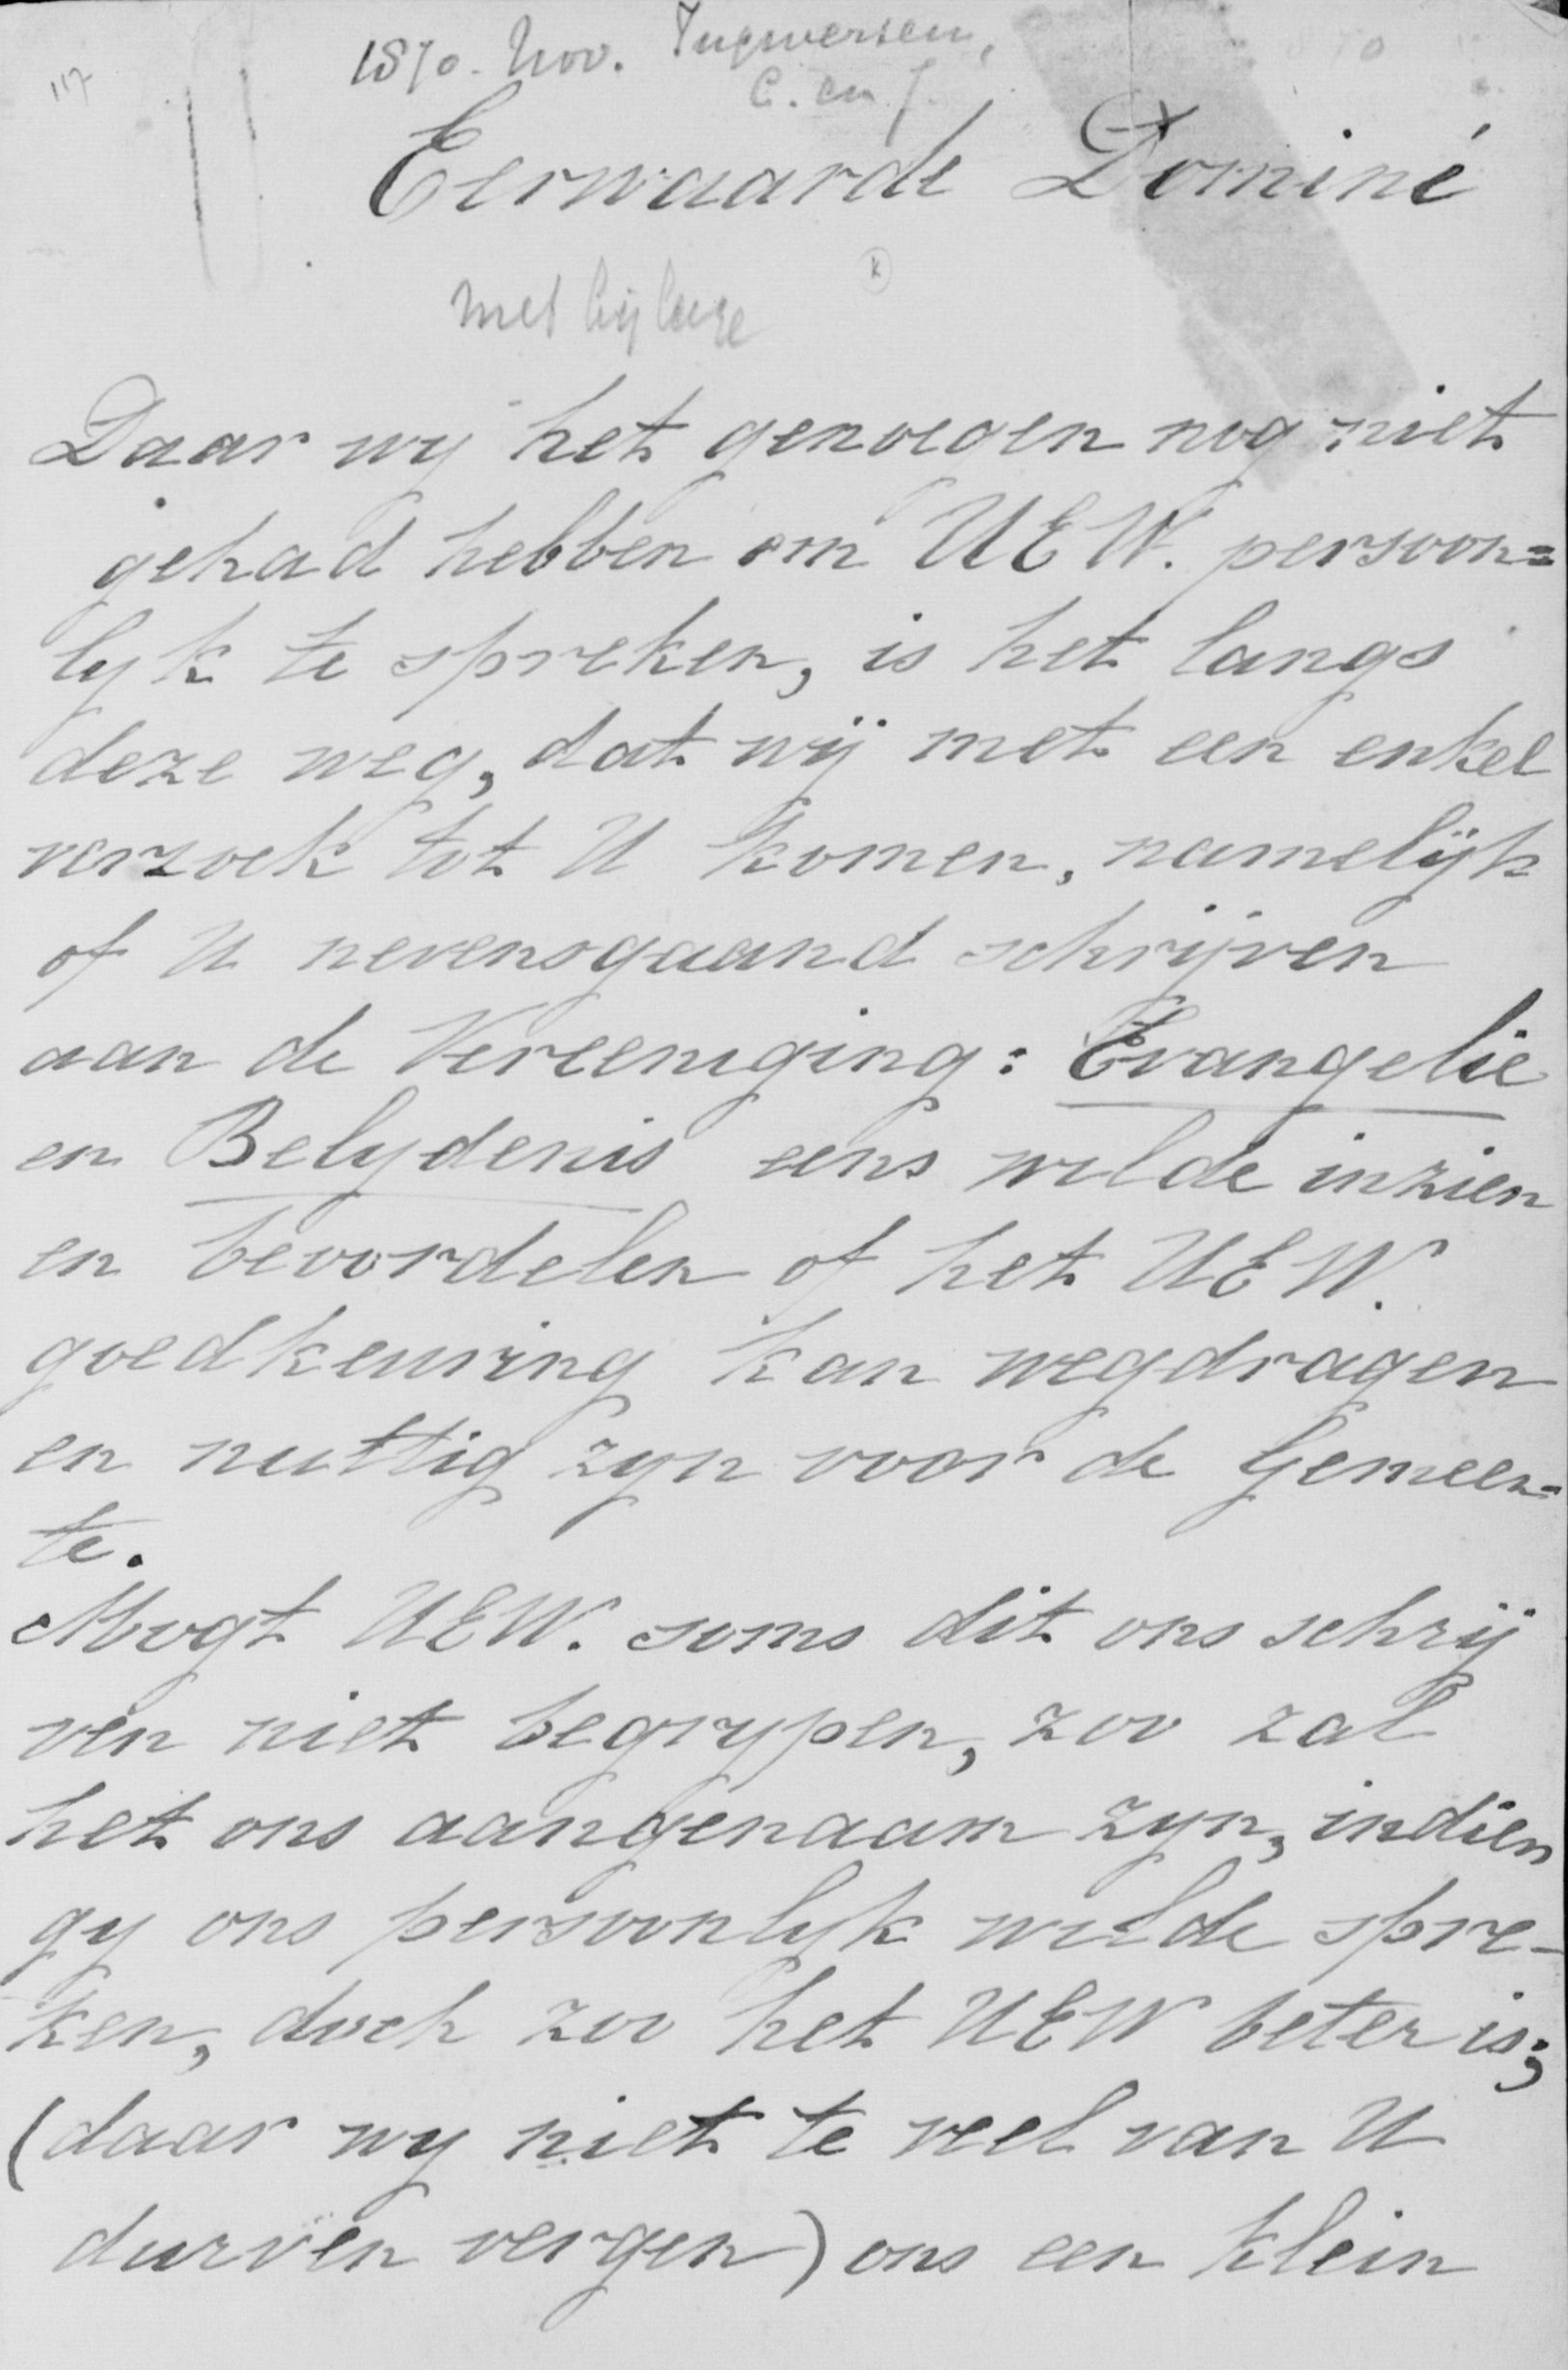 117
1870. Nov. Ingwersen,
C. en J.
Eerwaarde Dominé
met bijlage
Daar wy het genoegen nog niet
gehad hebben om UEW. persoon=
lyk te spreken, is het langs
deze weg, dat wij met een enkel
verzoek tot U komen, namelijk
of U nevensgaand schrijven
aan de Vereeniging: Evangelie
en Belydenis eens wilde inzien
en bevordelen of het UEW.
goedkeuring kan wegdragen
en nuttig zyn voor de Gemeen=
te.
Mogt UEW. soms dit ons schrij
ven niet begrypen, zoo zal
het ons aangenaam zyn, indien
gy ons persoonlyk wilde spre-
ken, doch zoo het UEW beter is;
(daar wy niet te veel van U
durven vergen) ons een klein